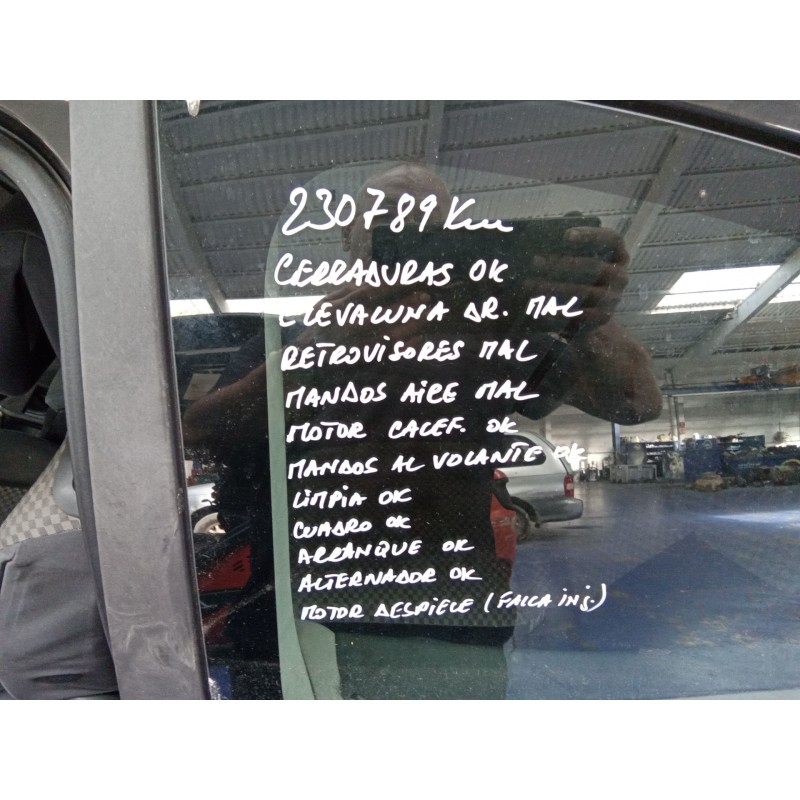 230789 Km
CERRADURAS OK
ELEVALUNA DR. MAL
RETROVISORES MAL
MANDOS AIRE MAL
MOTOR CALEF. OK
MANDOS AL VOLANTE OK
LIMPIA OK
CUADRO OK
ARRANQUE OK
ALTERNADOR OK
MOTOR DESPIECE (FALLA inj.)